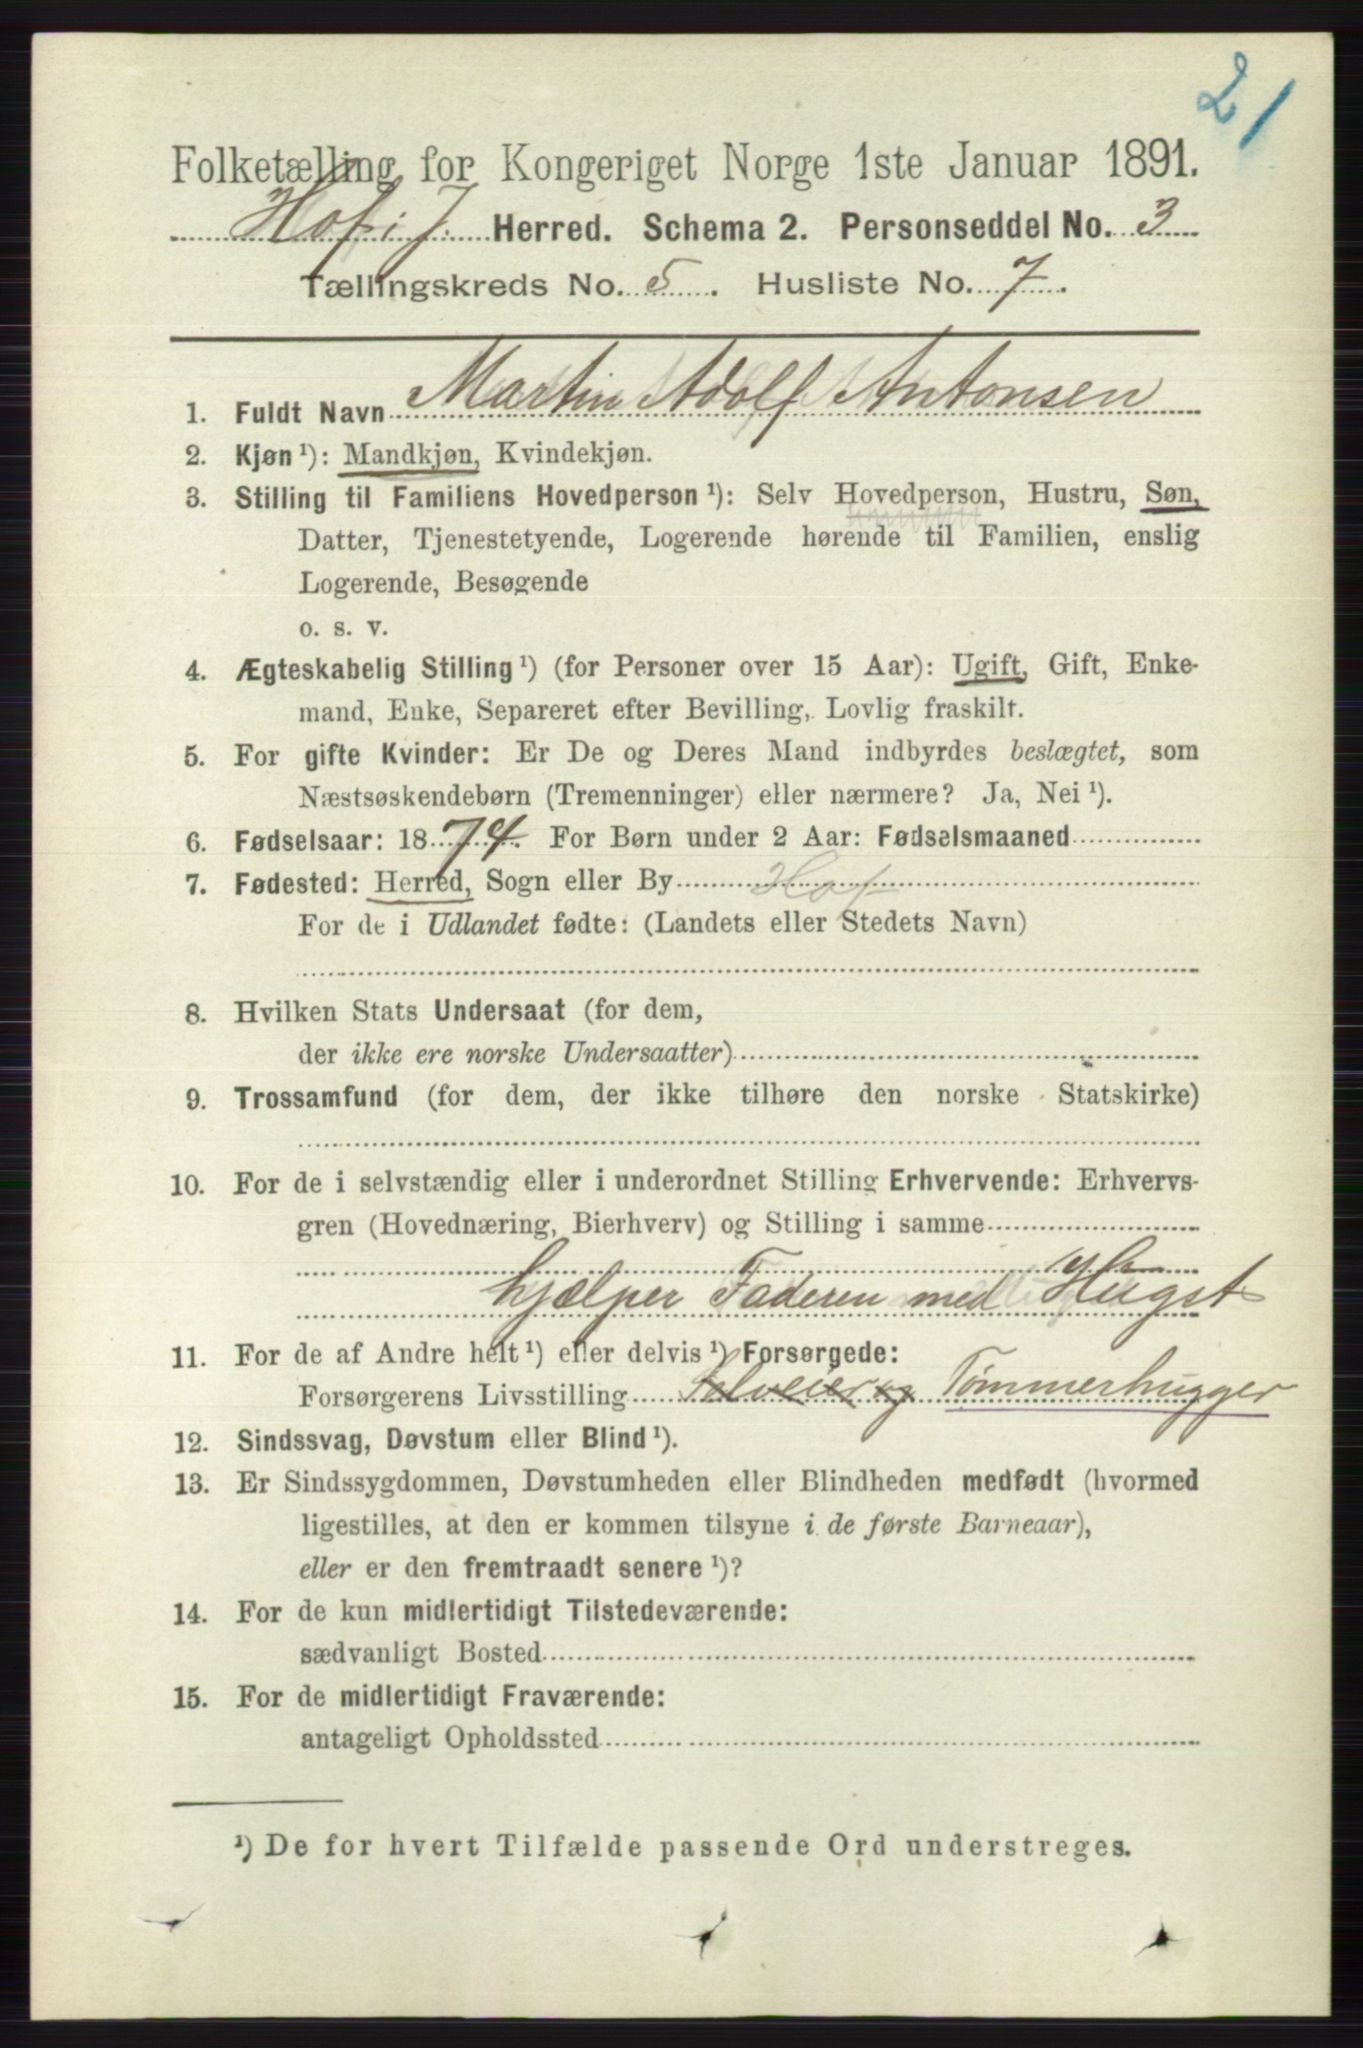 21
Folketælling for Kongeriget Norge 1ste Januar 1891.
Hof i J. Herred. Schema 2. Personseddel No. 3
Tællingskreds No. 5. Husliste No. 7.
1. Fuldt Navn Martin Adolf Antonsen
2. Kjøn¹): Mandkjøn, Kvindekjøn.
3. Stilling til Familiens Hovedperson¹): Selv Hovedperson, Hustru, Søn,
Datter, Tjenestetyende, Logerende hørende til Familien, enslig
Logerende, Besøgende
o. s. v.
4. Ægteskabelig Stilling¹) (for Personer over 15 Aar): Ugift, Gift, Enke-
mand, Enke, Separeret efter Bevilling, Lovlig fraskilt.
5. For gifte Kvinder: Er De og Deres Mand indbyrdes beslægtet, som
Næstsøskendebørn (Tremenninger) eller nærmere? Ja, Nei¹).
6. Fødselsaar: 1874. For Børn under 2 Aar: Fødselsmaaned
7. Fødested: Herred, Sogn eller By Hof
For de i Udlandet fødte: (Landets eller Stedets Navn)
8. Hvilken Stats Undersaat (for dem,
der ikke ere norske Undersaatter)
9. Trossamfund (for dem, der ikke tilhøre den norske Statskirke)
10. For de i selvstændig eller i underordnet Stilling Erhvervende: Erhvervs-
gren (Hovednæring, Bierhverv) og Stilling i samme
hjælper Faderen med Hugst
11. For de af Andre helt¹) eller delvis¹) Forsørgede:
Forsørgerens Livsstilling Selveier og Tømmerhugger
12. Sindssvag, Døvstum eller Blind¹).
13. Er Sindssygdommen, Døvstumheden eller Blindheden medfødt (hvormed
ligestilles, at den er kommen tilsyne i de første Barneaar),
eller er den fremtraadt senere¹)?
14. For de kun midlertidigt Tilstedeværende:
sædvanligt Bosted
15. For de midlertidigt Fraværende:
antageligt Opholdssted
¹) De for hvert Tilfælde passende Ord understreges.